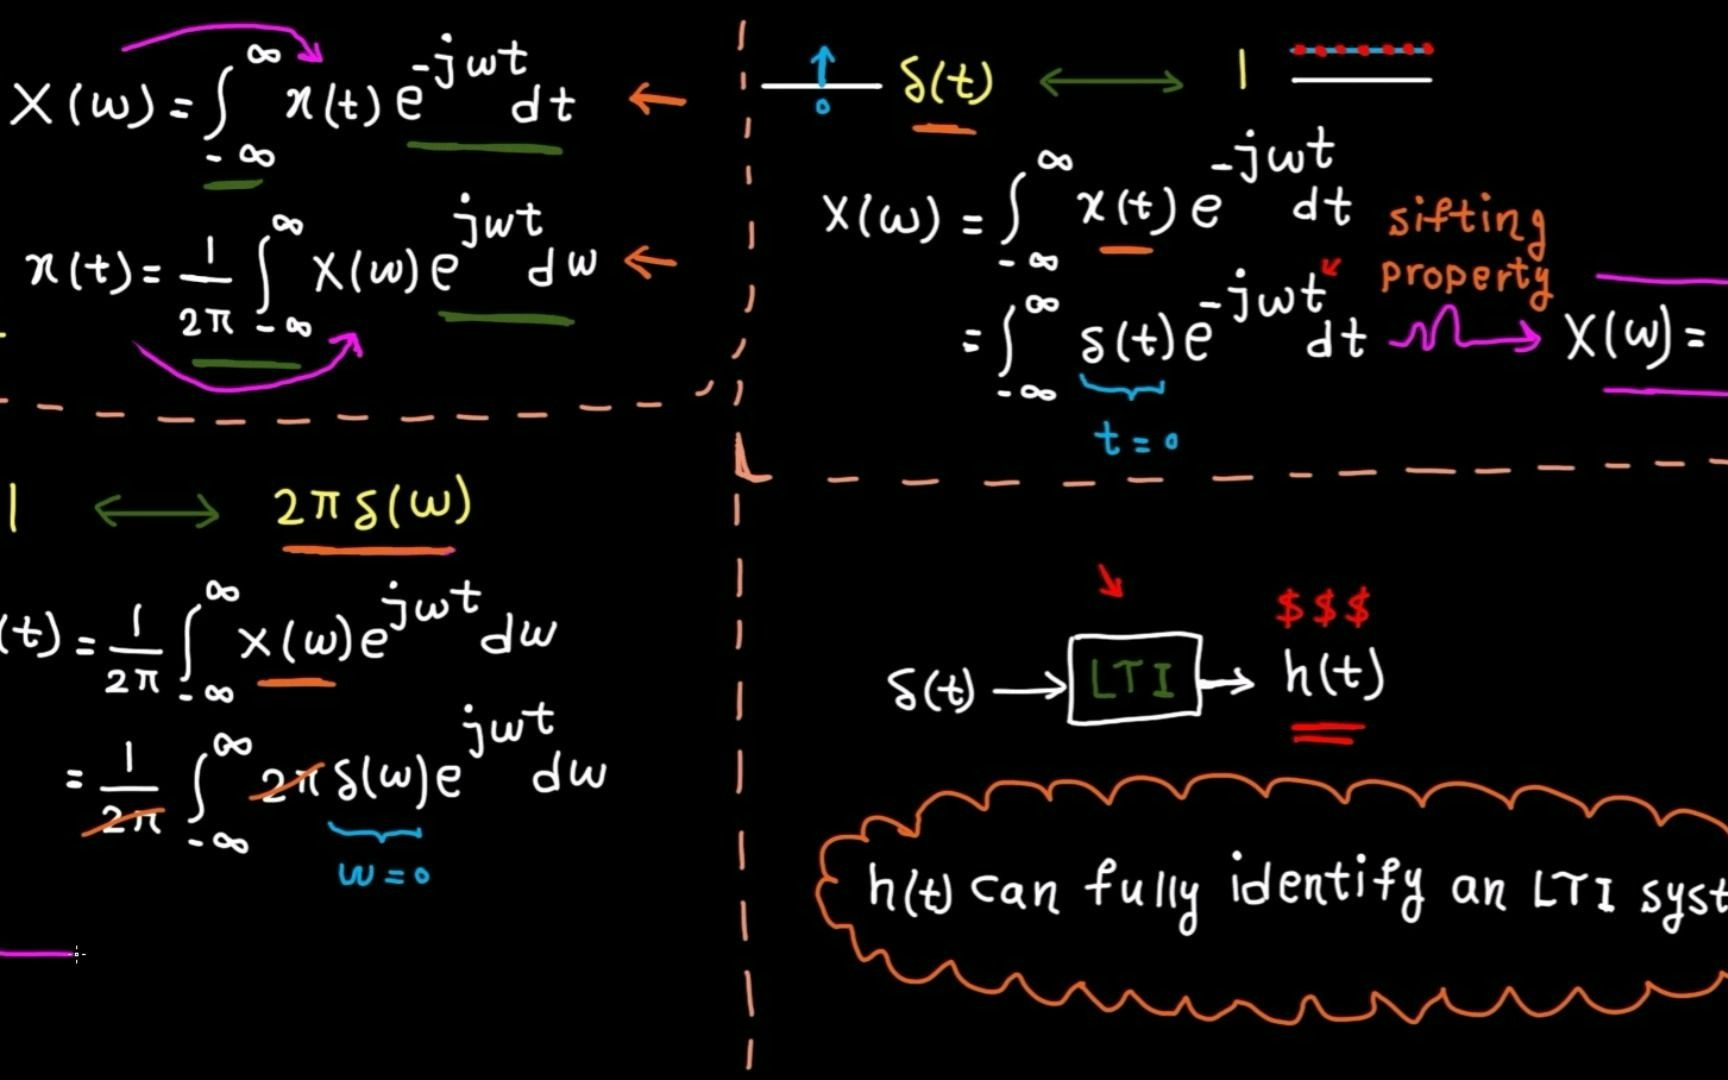 X(ω) = ∫_{-∞}^{∞} x(t) e^{-jωt} dt
x(t) = 1/2π ∫_{-∞}^{∞} X(ω) e^{jωt} dω
δ(t) ⟷ 1
0
X(ω) = ∫_{-∞}^{∞} x(t) e^{-jωt} dt
sifting
property
= ∫_{-∞}^{∞} δ(t) e^{-jωt} dt → X(ω) =
t = 0
1 ⟷ 2π δ(ω)
(t) = 1/2π ∫_{-∞}^{∞} X(ω) e^{jωt} dω
= 1/2π ∫_{-∞}^{∞} 2π δ(ω) e^{jωt} dω
ω = 0
$$$
δ(t) → LTI → h(t)
h(t) can fully identify an LTI syst